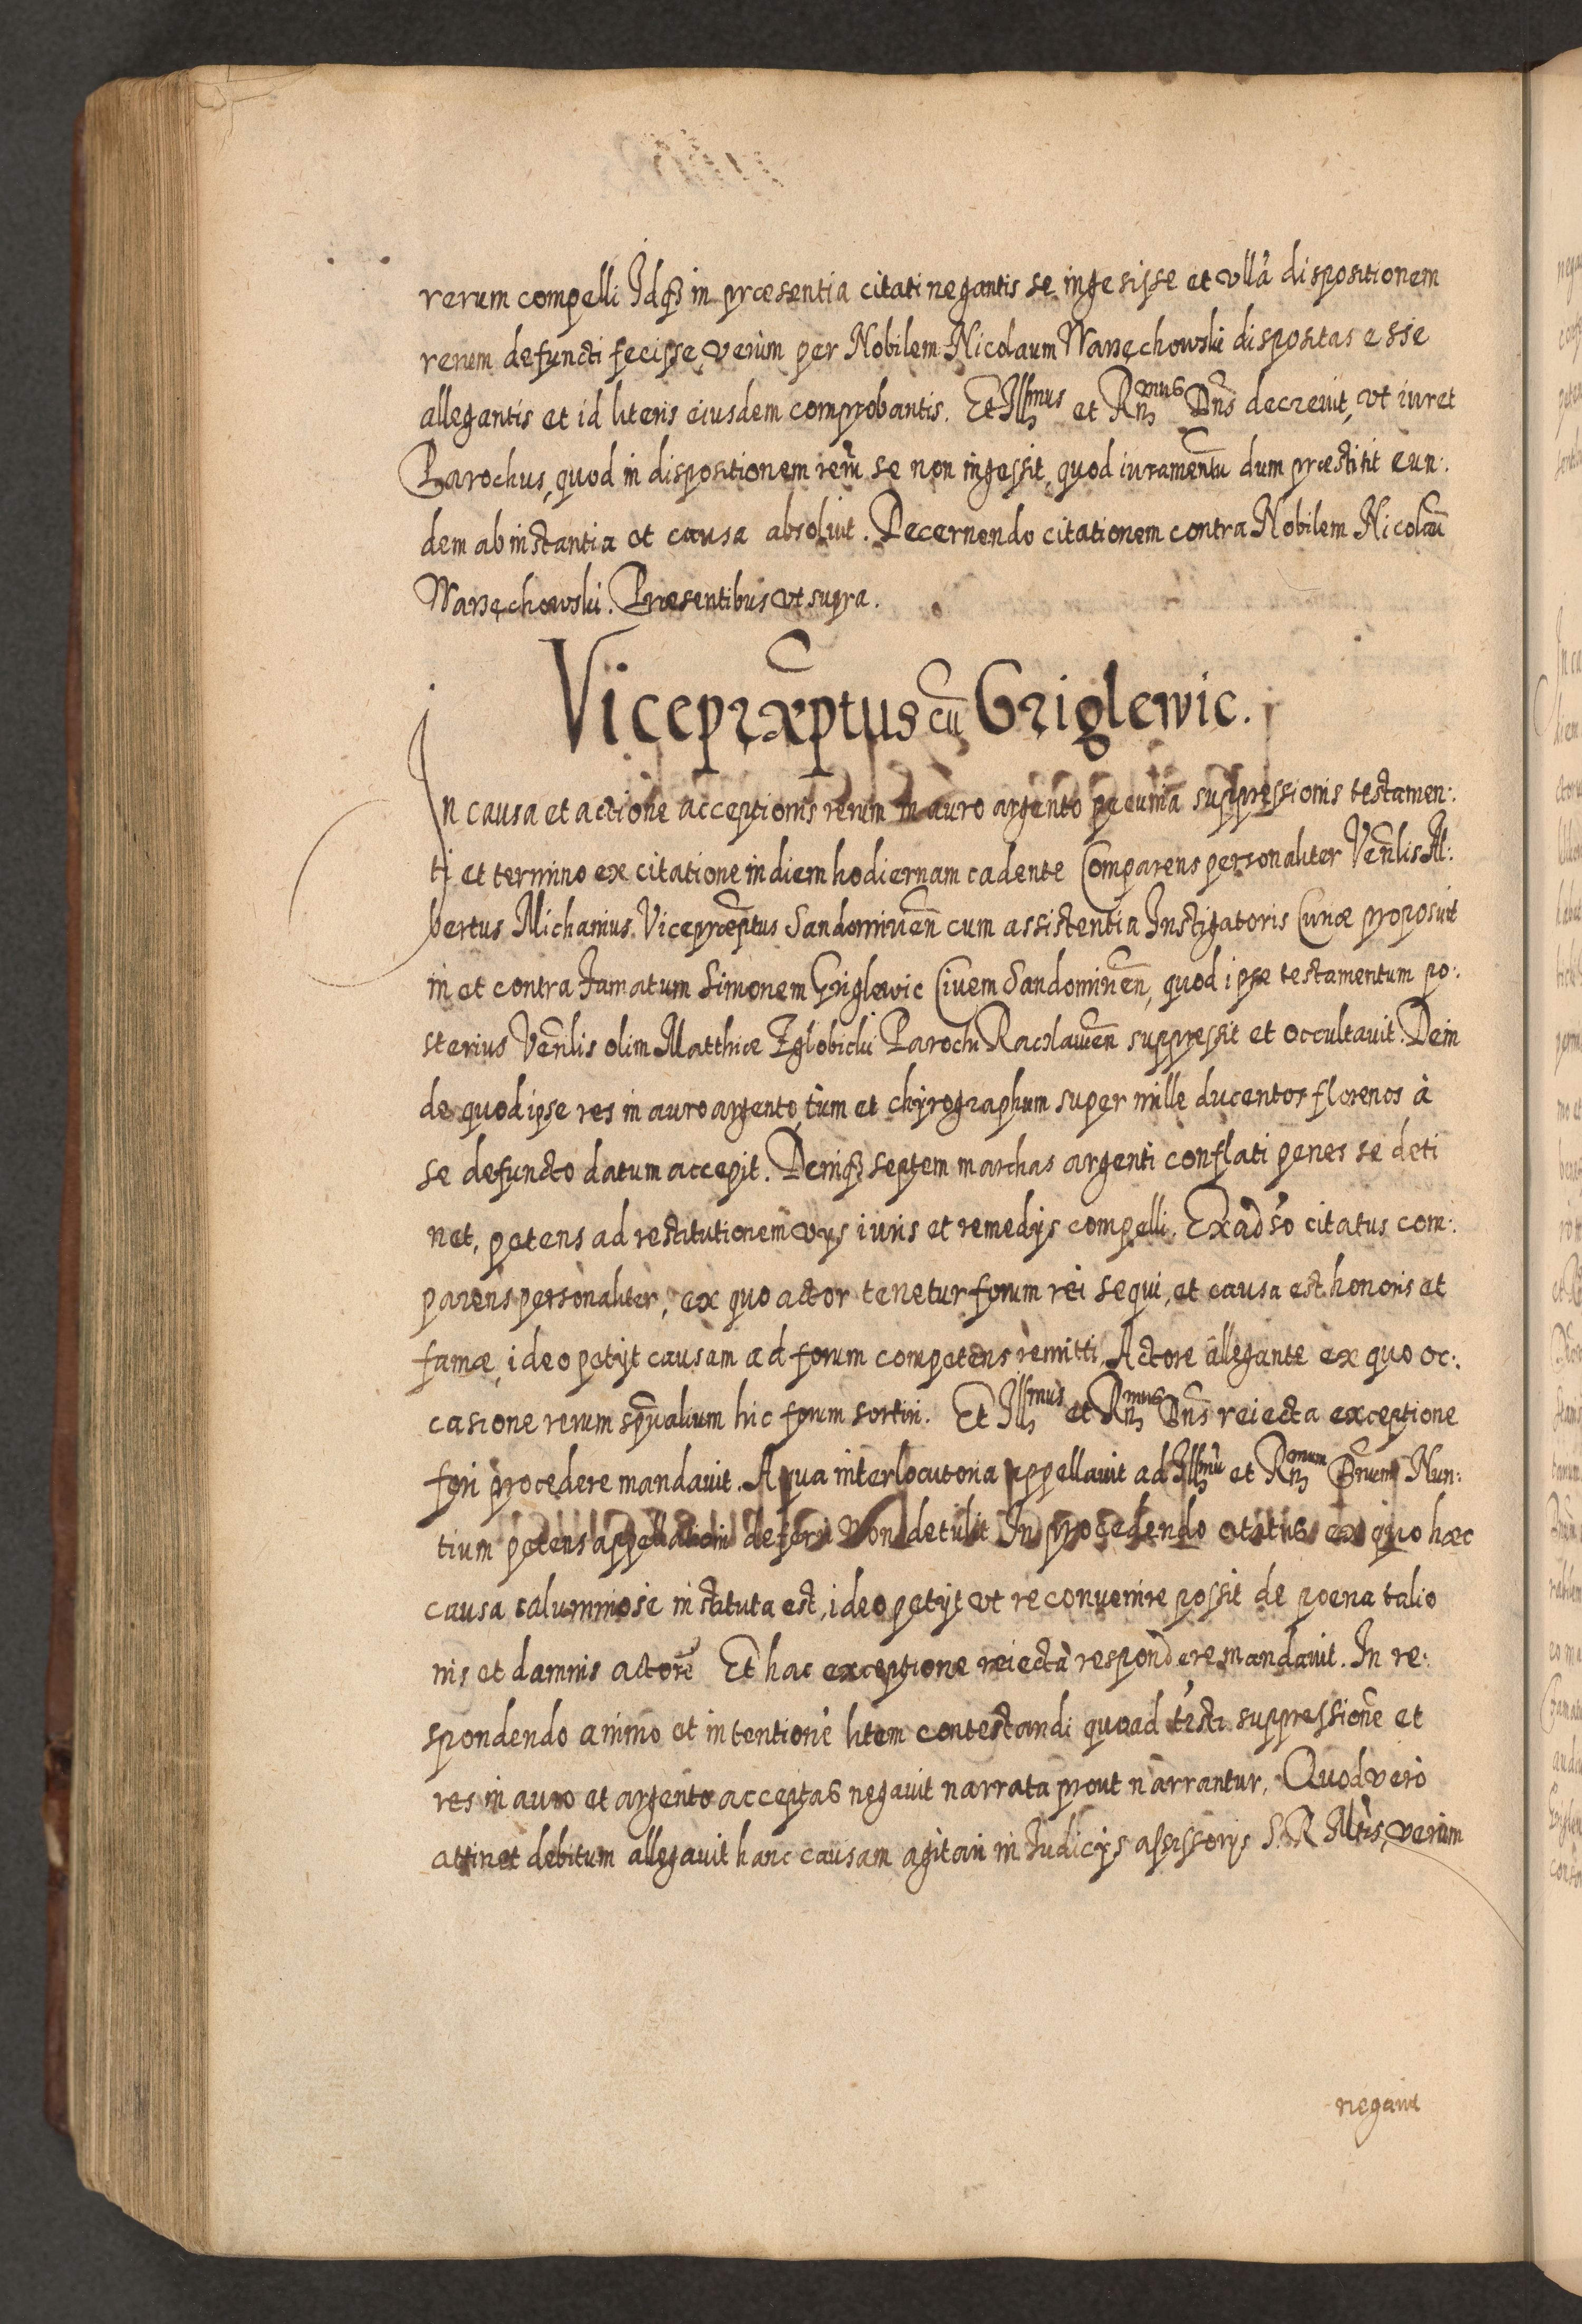 rerum compelli Idq₃ in præsentia citati negantis se ingesisse et vllã dispositionem
rerum defuncti fecisse, verùm per Nobilem Nicolaum Warzęchowski dispositas esse
allegantis et id literis eiusdem comprobantis. Et Illmus et Rnmus Dns decrevit, vt iuret
Parochus, quod in dispositionem rerũ se non ingessit, quod iuramentũ dum præstitit eun:
dem ab instantia et causa absoluit. Decernendo citationem contra Nobilem Nicolaũ
Warzęchowski. Præsentibus vt supra.
Vicepræptus cũ Griglewic.
In causa et actione acceptionis rerum in auro argento pecunia suppressionis testamen:
ti et termino ex citatione in diem hodiernam cadente Comparens personaliter Venlis Al:
bertus Michanius Vicepræptus Sandomirien cum assistentia Instigatoris Curiæ proposuit
in et contra Famatum Simonem Griglewic Civem Sandomirien, quod ipse testamentum po:
sterius Venlis olim Matthiæ Zglobicki Parochi Raclavien suppressit et occultauit. Dein
de quod ipse res in auro argento, tùm et chyrographum super mille ducentos florenos à
se defuncto datum accepit. Deniq₃ septem marchas argenti conflati penes se deti
net, petens ad restitutionem vijs iuris et remedijs compelli. Ex adso citatus com:
parens personaliter, ex quo actor tenetur forum rei sequi, et causa est honoris et
famæ, ideo petijt causam ad forum competens remitti, Actore allegante ex quo oc:
casione rerum spũalium hic forum sortiri. Et Illmus et Rnmus Dns reiecta exceptione
fori procedere mandauit. A qua interlocutoria appellauit ad Illmũ et Rnmum Dnum Nun:
tium petens appellationi deferri Non detulit In procedendo citatus ex quo hæc
causa calumniosè instituta est, ideo petijt vt reconuenire possit de poena talio
nis et damnis actorẽ Et hac exceptione reiecta respondere mandauit. In re:
spondendo animo et intentione litem contestandi quoad testi suppressionẽ et
res in auro et argento acceptas negauit narrata prout narrantur. Quod vero
attinet debitum allegauit hanc causam agitari in Iudicijs assessorijs S. R. Mttis, verùm
negauit